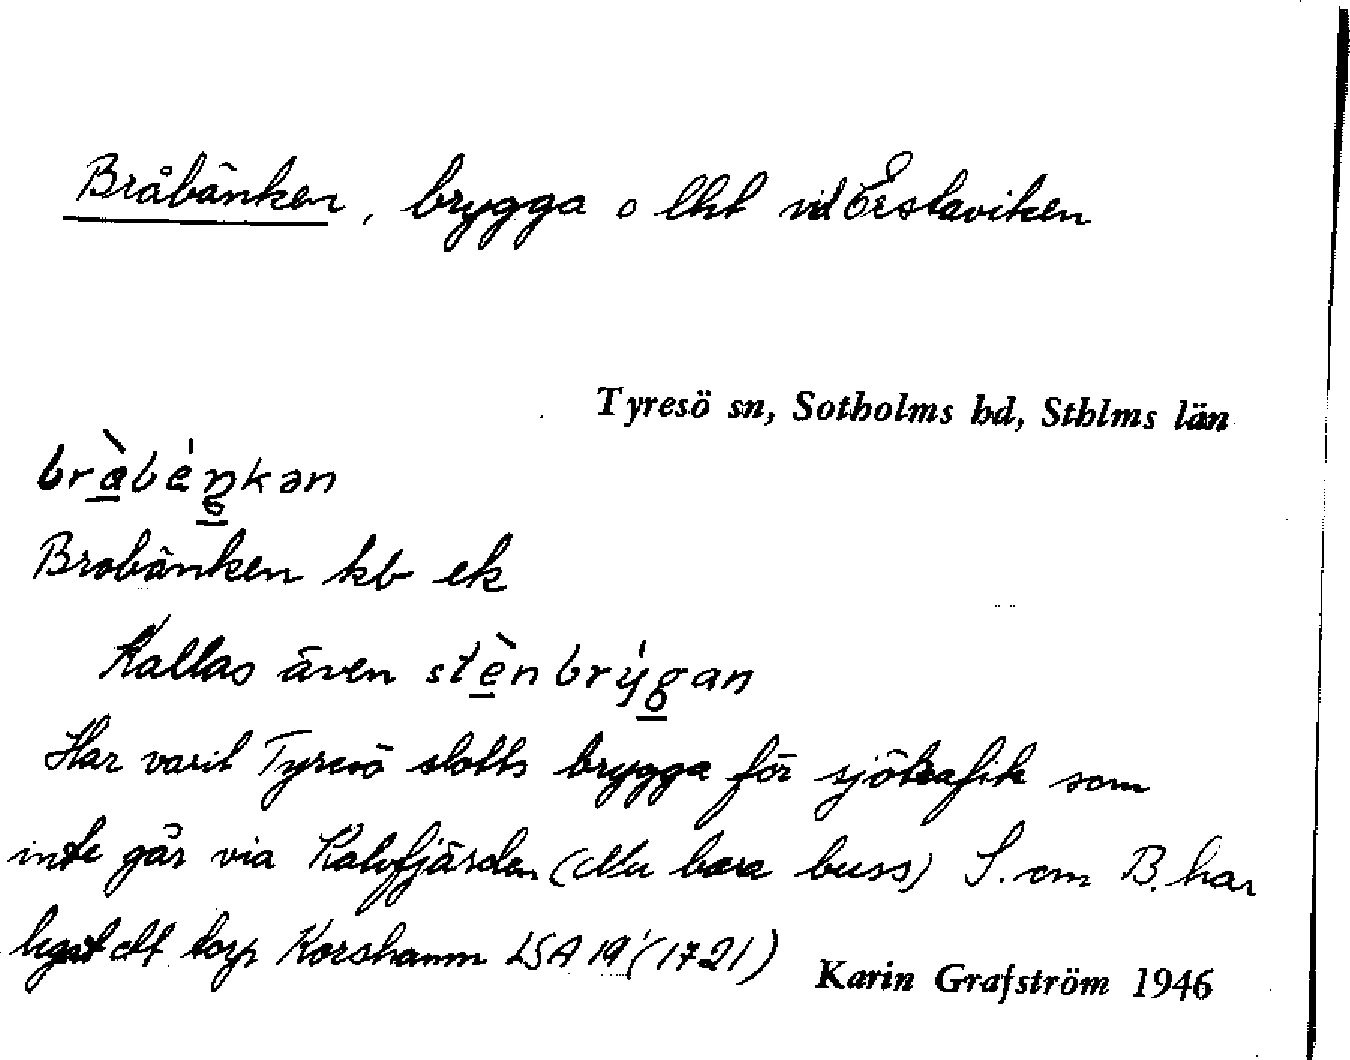 Bråbänken, brygga o lht vid Erstaviken
Tyresö sn, Sotholms hd, Sthlms län
bràbéŋkən
Brobänken kb ek
Kallas även stènbrýgan
Har varit Tyresö slotts brygga för sjötrafik som
inte går via Kalvfjärden (Nu bara buss) S. om B. har
legat ett torp Korshamn LSA 19 (1721)
Karin Grafström 1946